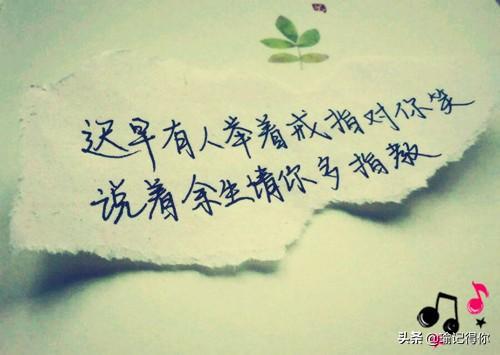 迟早有人举着戒指对你笑
说着余生请你多指教
头条@瑜记得你